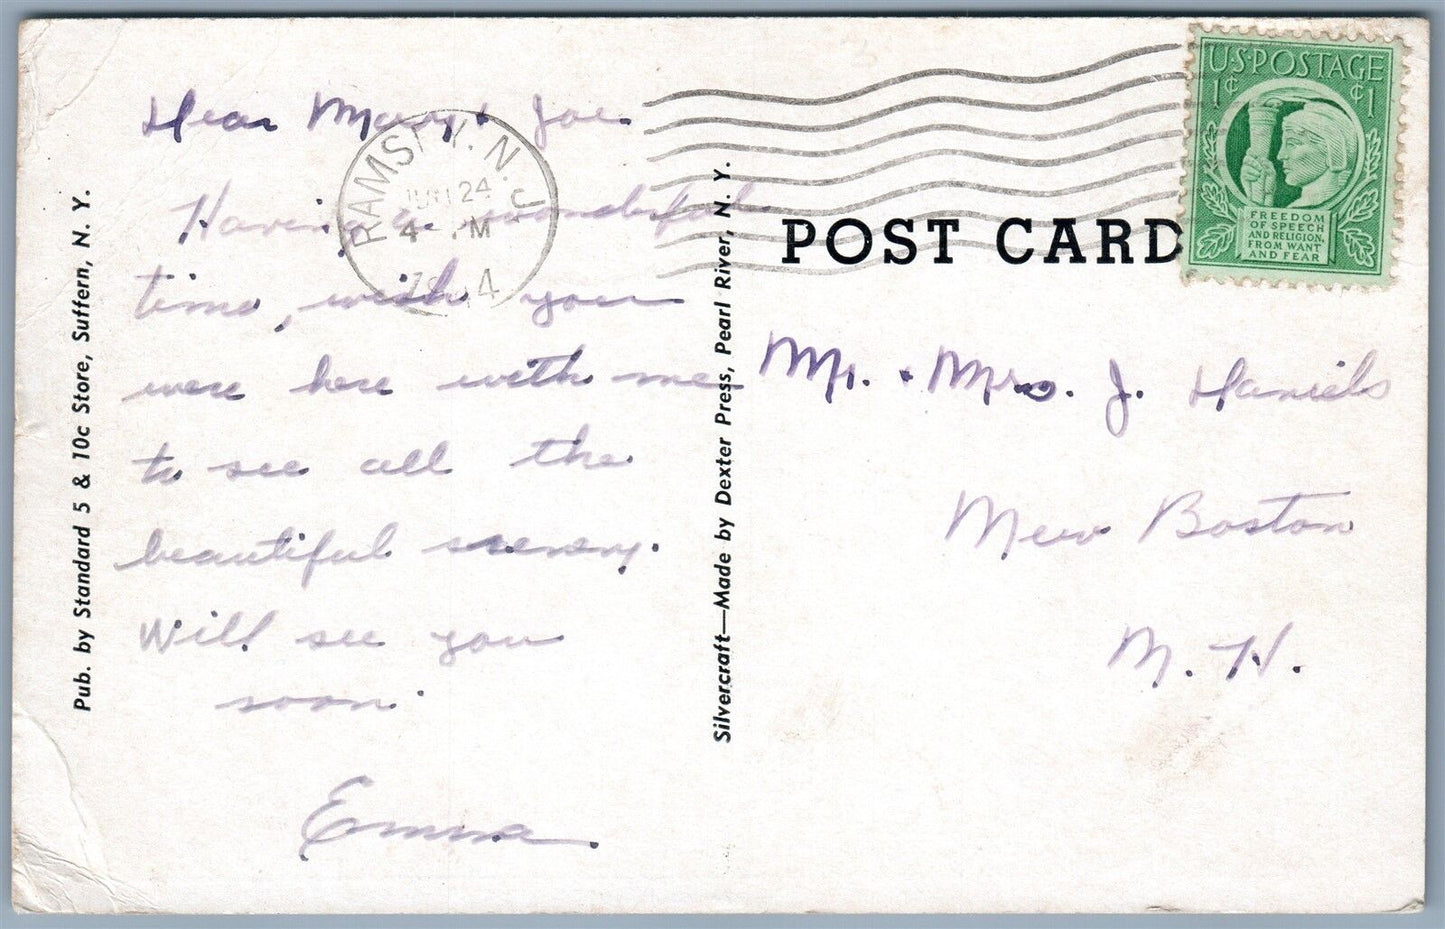 Dear Mary + Joe.
Having a wonderful
time, wish you
were here with me
to see all the
beautiful scenery.
Will see you
soon.
Emma.
Pub. by Standard 5 & 10c Store, Suffern, N. Y.
Silvercraft—Made by Dexter Press, Pearl River, N. Y.
RAMSEY. N. J.
JUN 24
4 - PM
U.S. POSTAGE
1¢ ¢1
FREEDOM
OF SPEECH
AND RELIGION,
FROM WANT
AND FEAR
POST CARD
Mr. + Mrs. J. Daniels
New Boston
N. H.